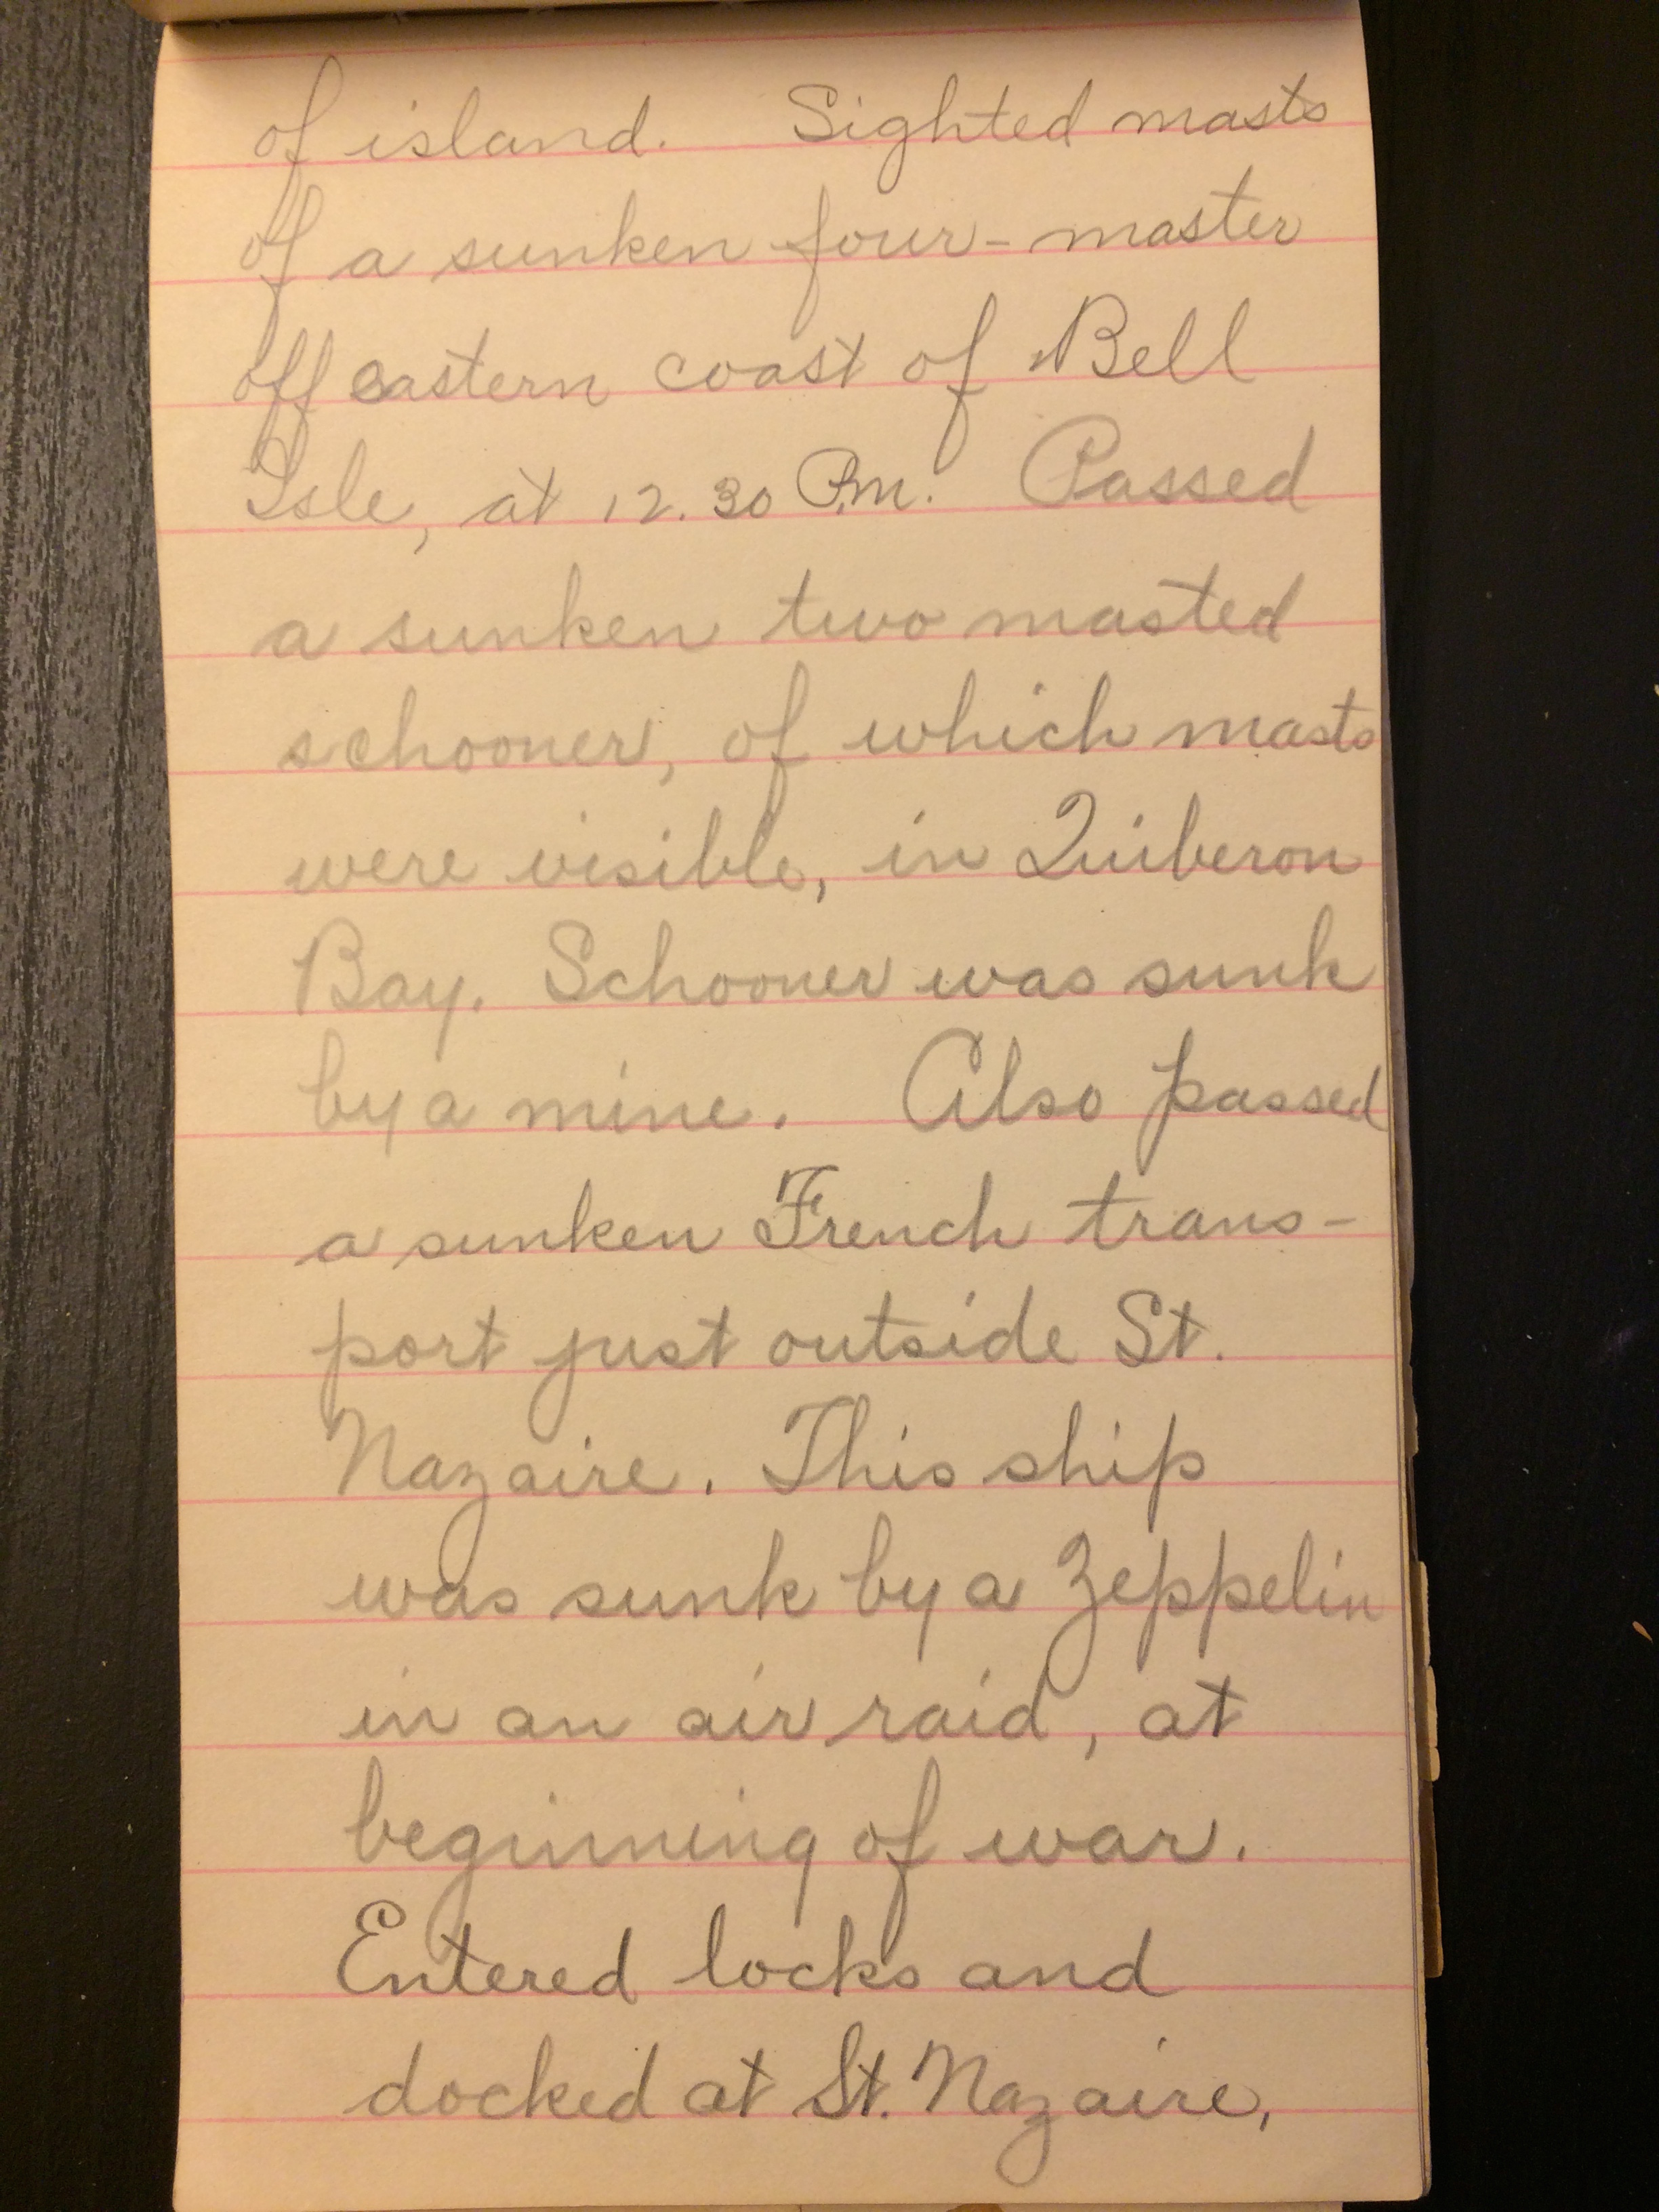 of island. Sighted masts
of a sunken four-master
off eastern coast of Bell
Isle, at 12.30 P.m. Passed
a sunken two masted
schooner, of which masts
were visible, in Quiberon
Bay. Schooner was sunk
by a mine. Also passed
a sunken French trans-
port just outside St.
Nazaire. This ship
was sunk by a Zeppelin
in an air raid, at
beginning of war.
Entered locks and
docked at St. Nazaire,